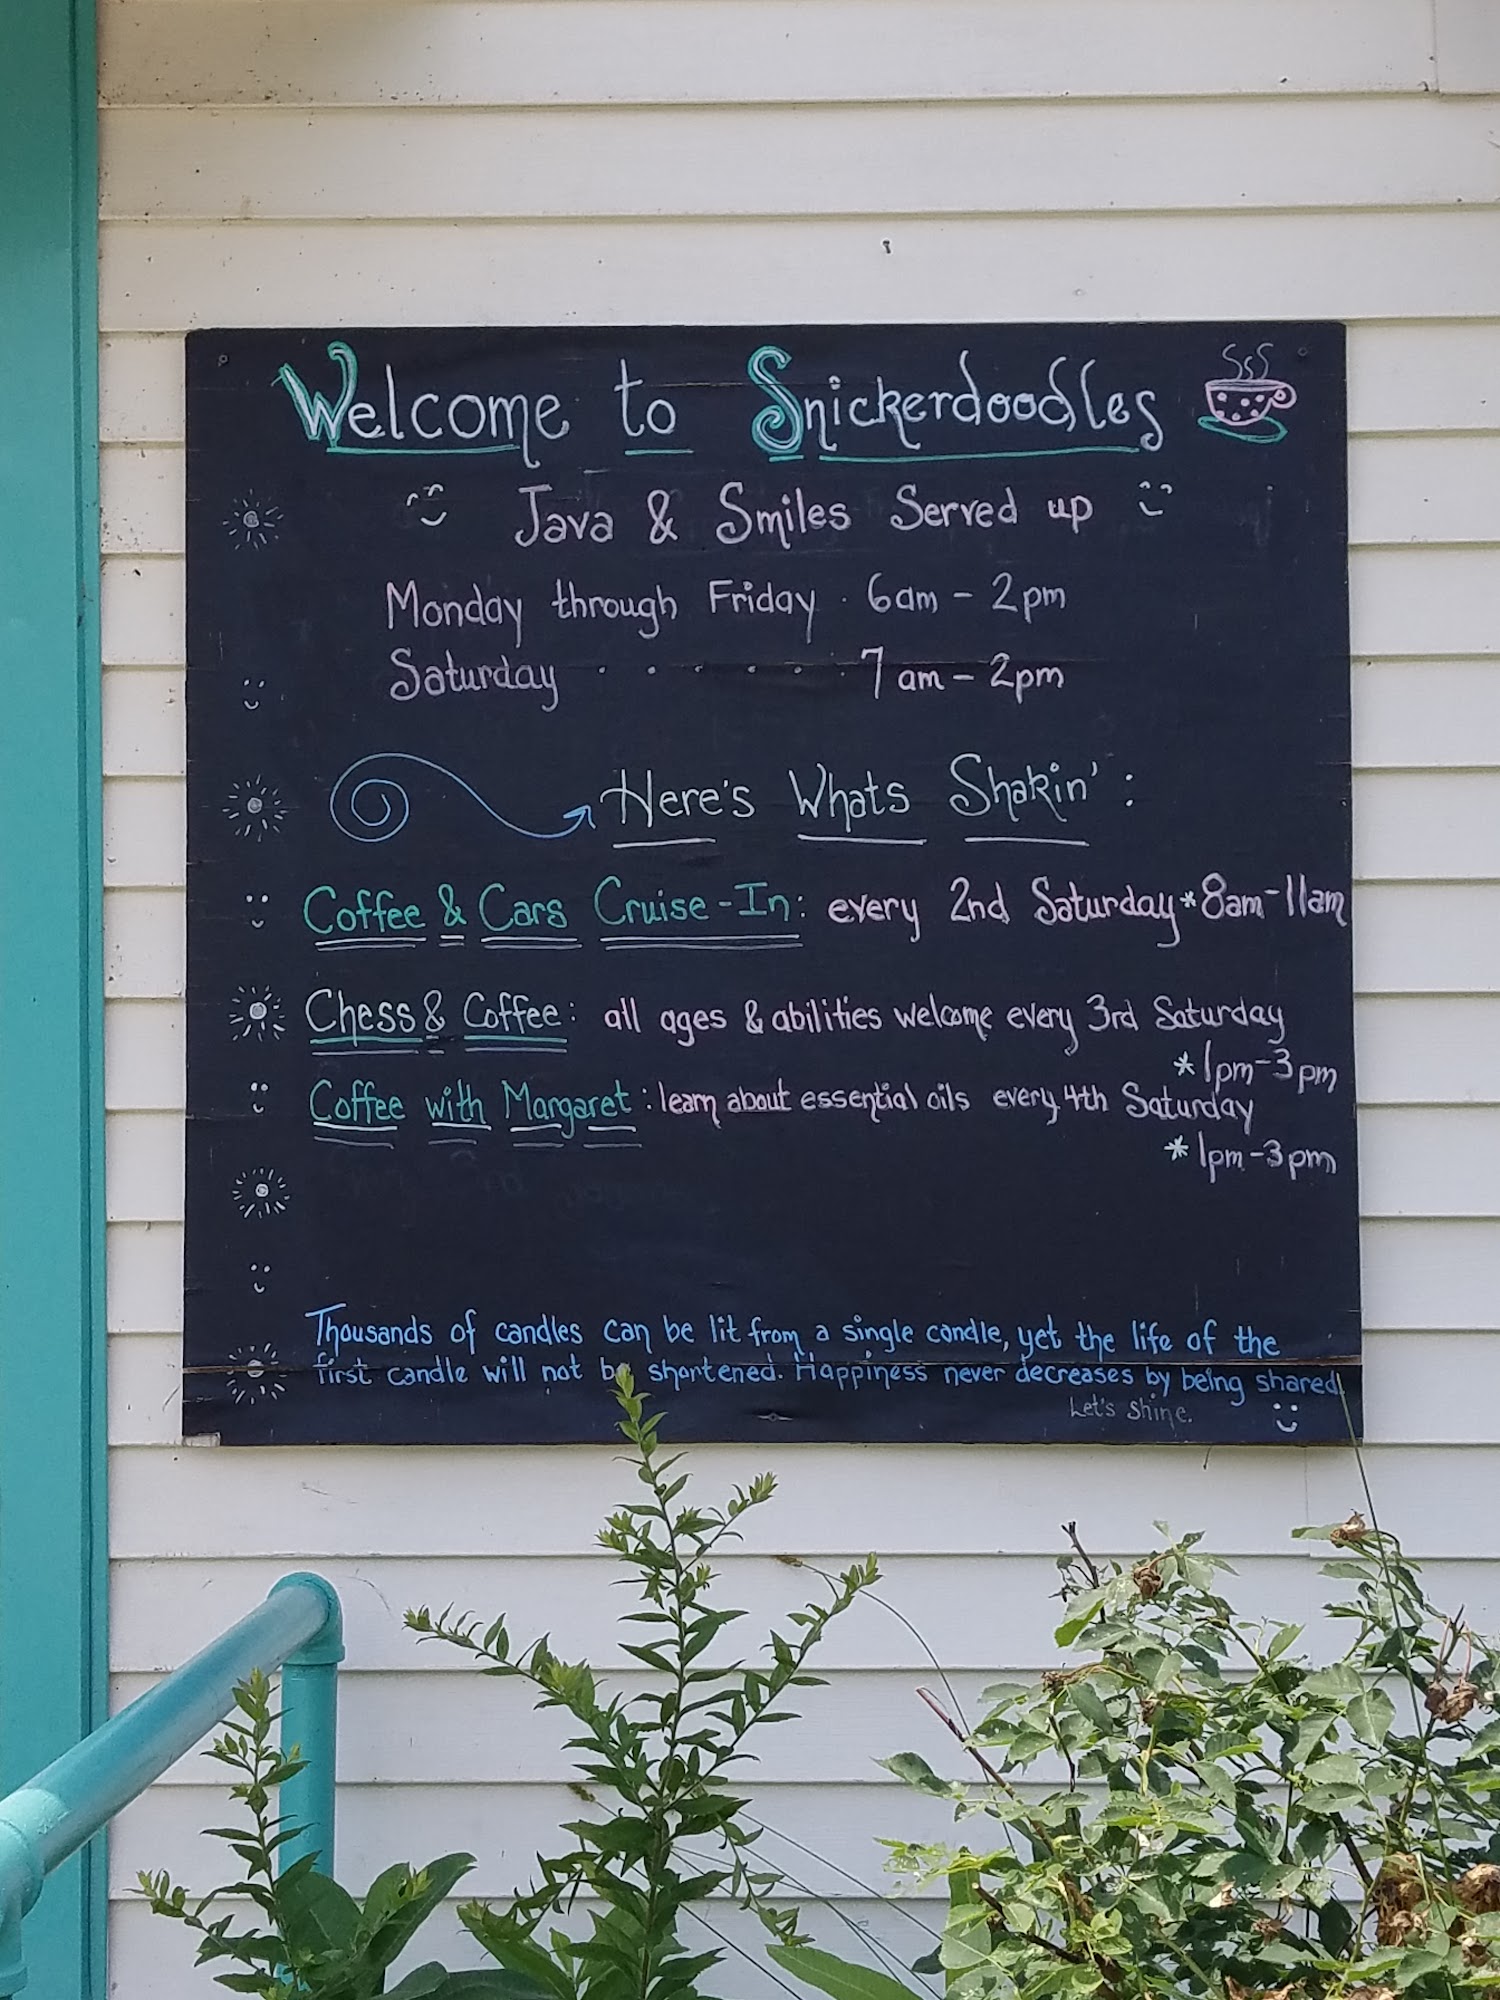 Welcome to Snickerdoodles
Java & Smiles Served up
Monday through Friday . 6am - 2pm
Saturday . . . . . . 7am - 2pm
Here's Whats Shakin' :
Coffee & Cars Cruise-In: every 2nd Saturday * 8am-11am
Chess & Coffee: all ages & abilities welcome every 3rd Saturday
* 1pm-3pm
Coffee with Margaret: learn about essential oils every 4th Saturday
* 1pm-3pm
Thousands of candles can be lit from a single candle, yet the life of the
first candle will not be shortened. Happiness never decreases by being shared.
Let's shine.